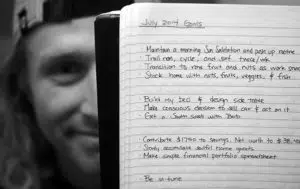 July 2014 Goals
Maintain a morning Sun Salutation and push up routine
Trail run, cycle, and surf
Transition to raw fruit and nuts as work snacks
Stock home with nuts, fruits, veggies, & fish
Build my bed & design side table
Make conscious decision to sell car & act on it
Get a South swell with
Contribute $1740 to savings. Net worth to
Slowly accumulate
Make simple financial portfolio spreadsheet
Be in-tune